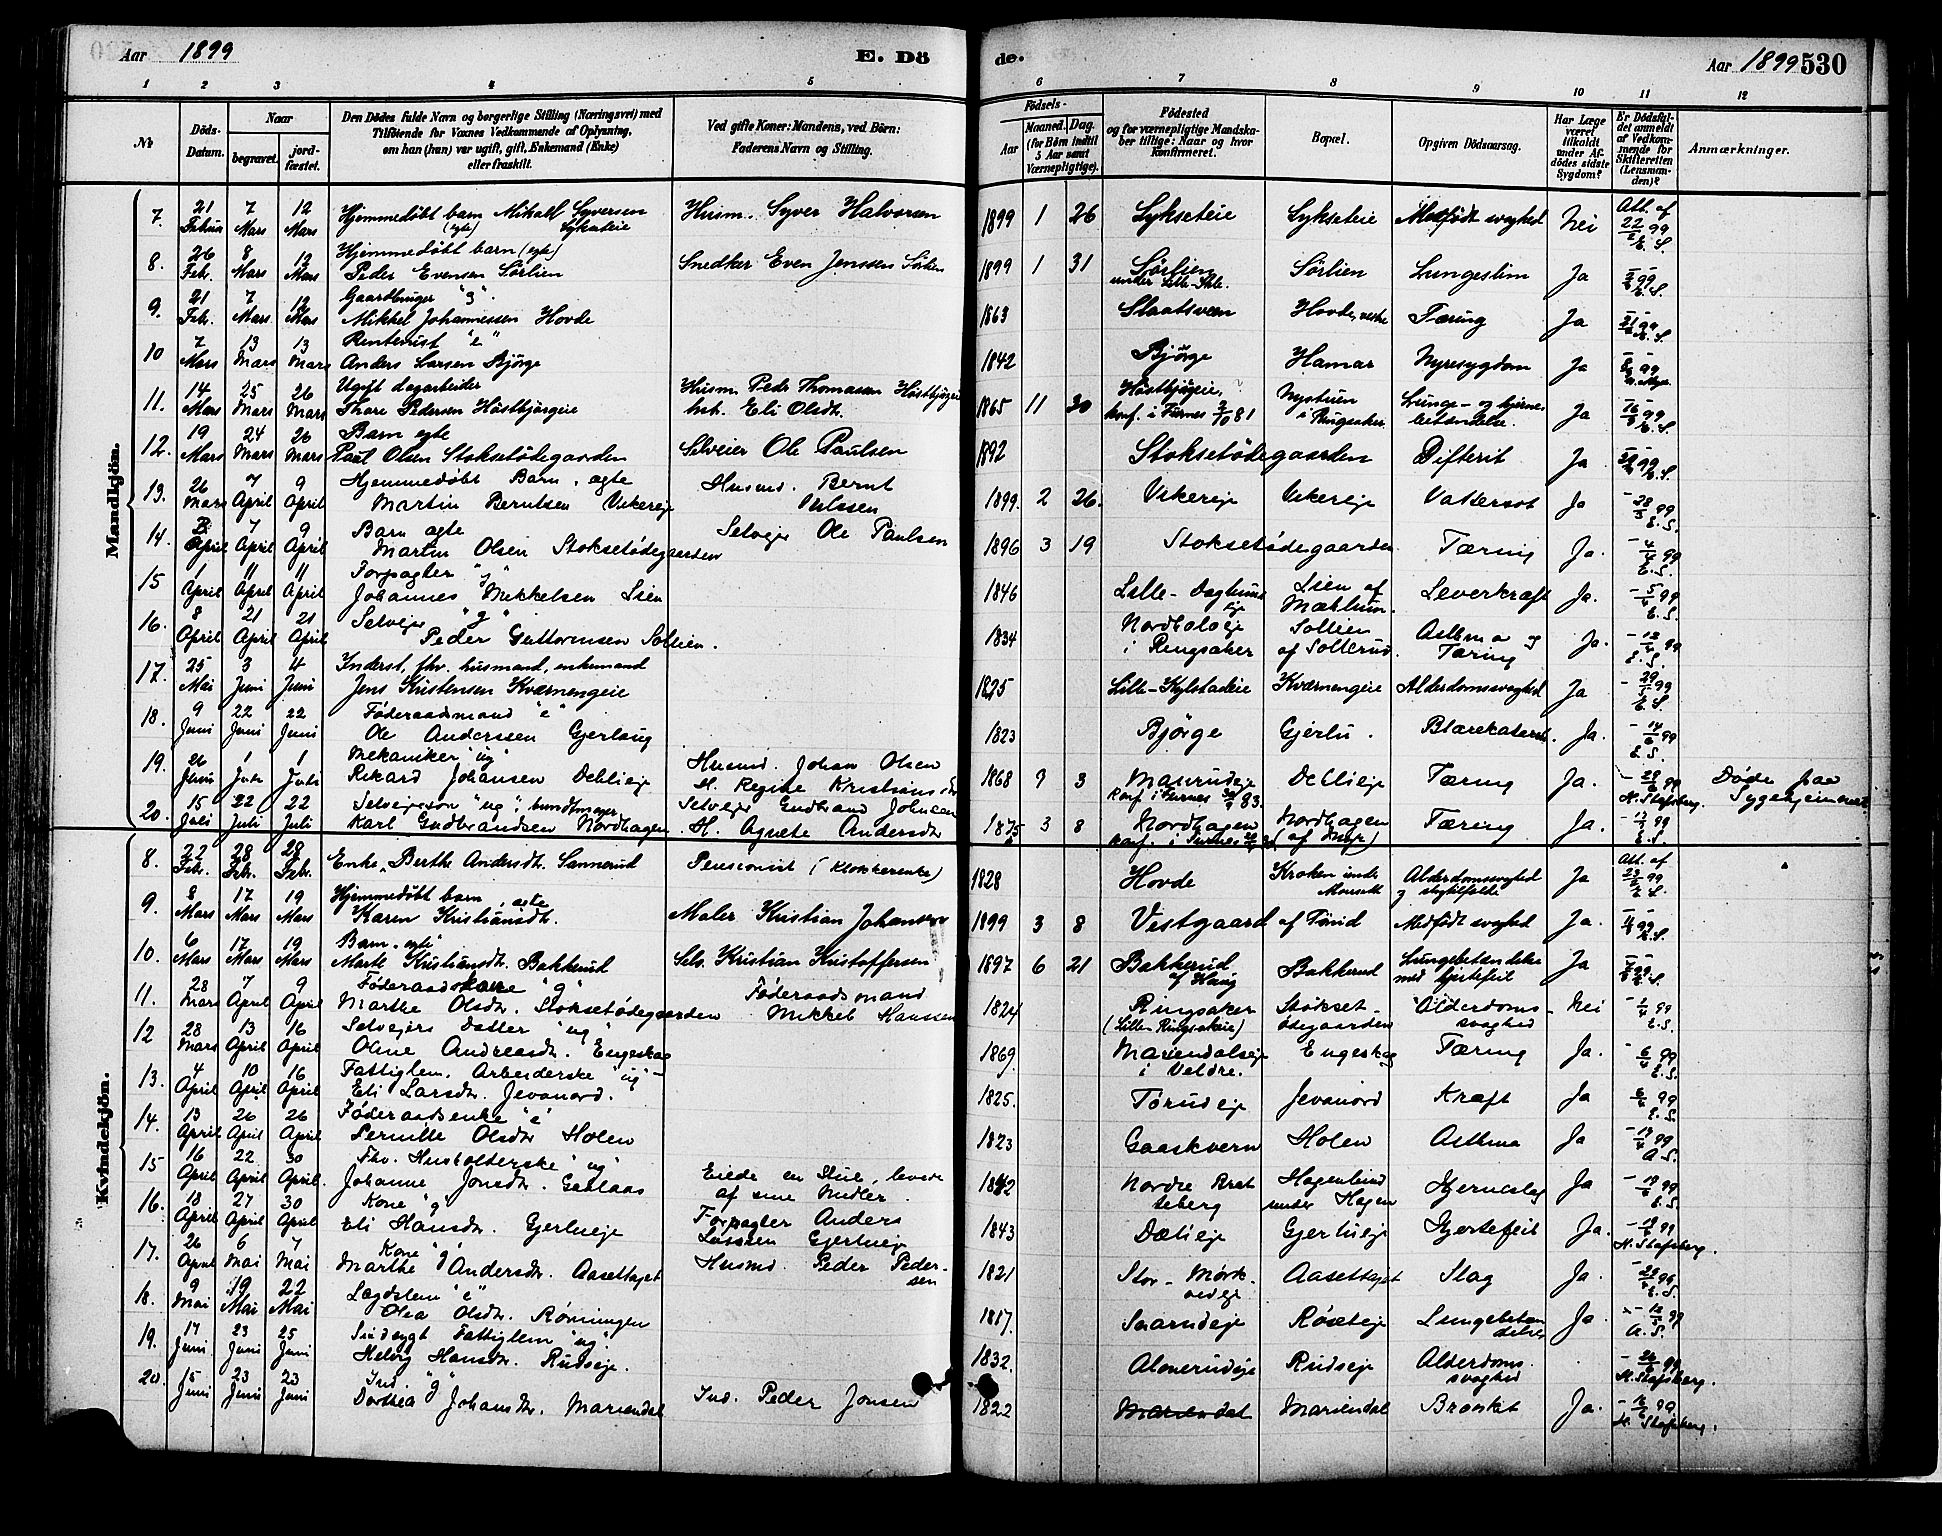 Aar 1899
E. Dö
de.
Aar 1899 530
1 2 3 4 5 6 7 8 9 10 11 12
No
Döds-
Datum.
Naar
begravet.
jord-
fæstet.
Den Dödes fulde Navn og borgerlige Stilling (Næringsvei) med
Tilföiende for Voxnes Vedkommende af Oplysning,
om han (hun) var ugift, gift, Enkemand (Enke)
eller fraskilt.
Ved gifte Koner: Mandens, ved Börn:
Faderens Navn og Stilling.
Födsels-
Aar
Maaned. Dag.
(for Börn indtil
5 Aar samt
Værnepligtige).
Födested
og for værnepligtige Mandska-
ber tillige: Naar og hvor
konfirmeret.
Bopæl.
Opgiven Dödsaarsag.
Har Læge
været
tilkaldt
under Af-
dödes sidste
Sygdom?
Er Dödsfal-
det anmeldt
af Vedkom-
mende for
Skifteretten
(Lensman-
den)?
Anmærkninger.
Mandkjön.
7. 21 Februar 7 Mars 12 Mars Hjemmedøbt barn Mikall Syversen (egte) Sykseteie Husm. Syver Halvorsen 1899 1 26 Sykseteie Sykseteie Medfødt svaghed Nei Att. af 22/2 99 E. S.
8. 26 Febr. 8 Mars 12 Mars Hjemmedøbt barn (egte)
Peder Evensen Sørlien Snedker Even Jenssen Sørlien 1899 1 31 Sørlien Sørlien Lungeslim Ja
9. 21 Febr. 7 Mars 12 Mars Gaardbruger "g"
Mikkel Johannessen Hovde 1863 Staatsveen Hovde, vestre Tæring Ja
10 7 Mars 13 Mars 13 Mars Rentenist "e"
Anders Larsen Bjørge 1842 Bjørge Hamar Nyresygdom Ja
11. 14 Mars 25 Mars 26 Mars Ugift dagarbeider
Thore Pedersen Høstbjørgeie Husm Peder Thomassen Høstbjørgeie
hst. Eli Olsdt. 1865 11 30 Høstbjøgeie,
konf. i Furnes 2/10 81 Nystuen
i Ringsaker Lunge- og hjerne-
betændelse. Ja
12. 19 Mars 24 Mars 26 Mars Barn egte
Paul Olsen Stoksetødegaarden Selveier Ole Paulsen 1892 Stoksetødegaarden Difterit Ja
13. 26 Mars 7 April 9 April Hjemmedøbt Barn, egte
Martin Berntsen Vikereje Husmd. Bernt 1899. 2 26. Vikereje Vikereje Vattersot Ja - 28/3 99 E. S.
14. April 7 April 9 April Barn egte
Martin Olsen Stoksetødegaarden Selvejer Ole Paulsen 1896 3 19 Stoksetødegaarden Tæring Ja. - 4/4 99 E. S.
15 1 April 11 April 11 April Forpagter "g"
Johannes Mikkelsen Lien 1846 Lille- Dagtrums
eje Lien af
Mæhlum. Leverkræft Ja. - 5/4 99 E. S.
16. 8 April 21 April 21 April Selvejer "g"
Peder Guttormsen Sollien. 1834
i Ringsaker Sollien
af Sollerud. Astma og
Tæring Ja. - 12/4 99 E. S.
17. 25 Mai 3 Juni 4 Juni Inderst, fhv. husmand, enkemand
Jens Kristensen Kværnengeie 1825 Lille-Kylstadeie Kværnengeie Alderdomssvaghed Ja - 29/5 99 E. S.
18. 9 Juni 22 Juni 22 Juni Føderaadsmand "e"
Ole Anderssen Gjerlaug 1823 Bjørge Gjerlu. Blærekatarrh. Ja. - 14/6 99 E. S.
19. 26 Juni 1 Juli 1 Juli Mekaniker "ug"
Rikard Johansen Dehlieje Husmd. Johan Olsen
H. Regine Kristiansdr 1868 9 3 Maurudeje
konf. i Furnes 30/9 83. Dehlieje Tæring Ja. - 28/6 99 H. Stafsberg. Døde paa
Sygehjemmet
20. 15 Juli 22 Juli 22 Juli Selvejersøn "ug", bundtmager
Karl Gudbrandsen Nordhagen Selvejer Gudbrand Johnsen
H. Agnete Andersdr 1875 3 8 Nordhagen Nordhagen Tæring Ja.
Kvindekjön.
8. 22 Febr. 28 Febr. 28 Febr. Enke, Berthe Andersdt. Sannerud Pensionist (Klokkerenke) 1828 Hovde Kroken under Alderdomssvaghed Ja Att. af 23/2 99 E. S.
9. 8 Mars 17 Mars 19 Mars Hjemmedøbt barn, egte
Karen Kristiansdt. Maler Kristian Johansen 1899 3 8 Vestgaard af Tørud Medfødt svaghed Ja.
10. 6 Mars 17 Mars 19 Mars Barn, egte
Marte Kristiansdt. Bakkerud Selv. Kristian Kristoffersen 1897 6 21 Bakkerud
af Haug Bakkerud Lungebetændelse
med hjertefeil Ja
11. 28 Mars 7 April 9 April Føderaadskone "g"
Marthe Olsdr. Stoksetødegaarden Føderaadsmand
Mikkel Hanssen 1824 Ringsaker
(Lille Ringsakeie) Stokset-
ødegaarden Alderdoms-
svaghed Nei - 1/4 99 E. S.
12 28 Mars 13 April 16 April Selvejers Datter "ug"
Oline Andreasdr. Engeskog 1869. Mariendalseje
i Veldre. Engeskog Tæring Ja. - 6/4 99 E. S.
13. 4 April 10 April 16 April Fattiglem. Arbeiderske "ug"
Eli Larsdr. Jevanord. 1825. Tørudeje Jevanord Kræft Ja 6/4 99 E. S.
14. 13 April 26 April 26 April Føderaadsenke "e"
Pernille Olsdr Holen 1823 Gaaskvern Holen Asthma Ja - 19/4 99 A. S.
15 16 April 22 April 30 April. Fhv. Husholderske "ug"
Johanne Jonsdr. Geslaas Eiede en Stue, levede
af sine Midler. 1842 Nordre Bratteberg Hagenlund
under Hagen Hjerneslag Ja - 19/4 99 E. S.
16. 18 April 27 April 30 April Kone "g"
Eli Hansdr. Gjerlueje Forpagter Anders
Larssen Gjerlueje 1843 Dælieje Gjerlueje Hjertefeil Ja. H. Stafsberg.
17. 26 April 6 Mai 7 Mai Kone "g"
Marthe Andersdr. Aasettajet Husmd. Peder Peder-
sen 1821 Stor- Mørk-
vedeje Aasettajet Slag Ja.
18. 9 Mai 19 Mai 22 Mai Lægdslem "e"
Olea Olsdr. Rønningen 1817. Saarudeje Røseteje Lungebetæn-
delse Ja. A. S.
19. 17 Juni 23 Juni 25 Juni Sindsygt Fattiglem "ug".
Helvig Hansdr. Rudseje. 1832. Rudseje Alderdoms-
svaghed - 26/6 99 H. Stafsberg.
20. 15 Juni 23 Juni 23 Juni Ind "g"
Dorthea Johansdr. Mariendal Ind. Peder Jonsen 1822 Mariendal Mariendal Bronkit Ja. - 16/6 99. H. Stafsberg.